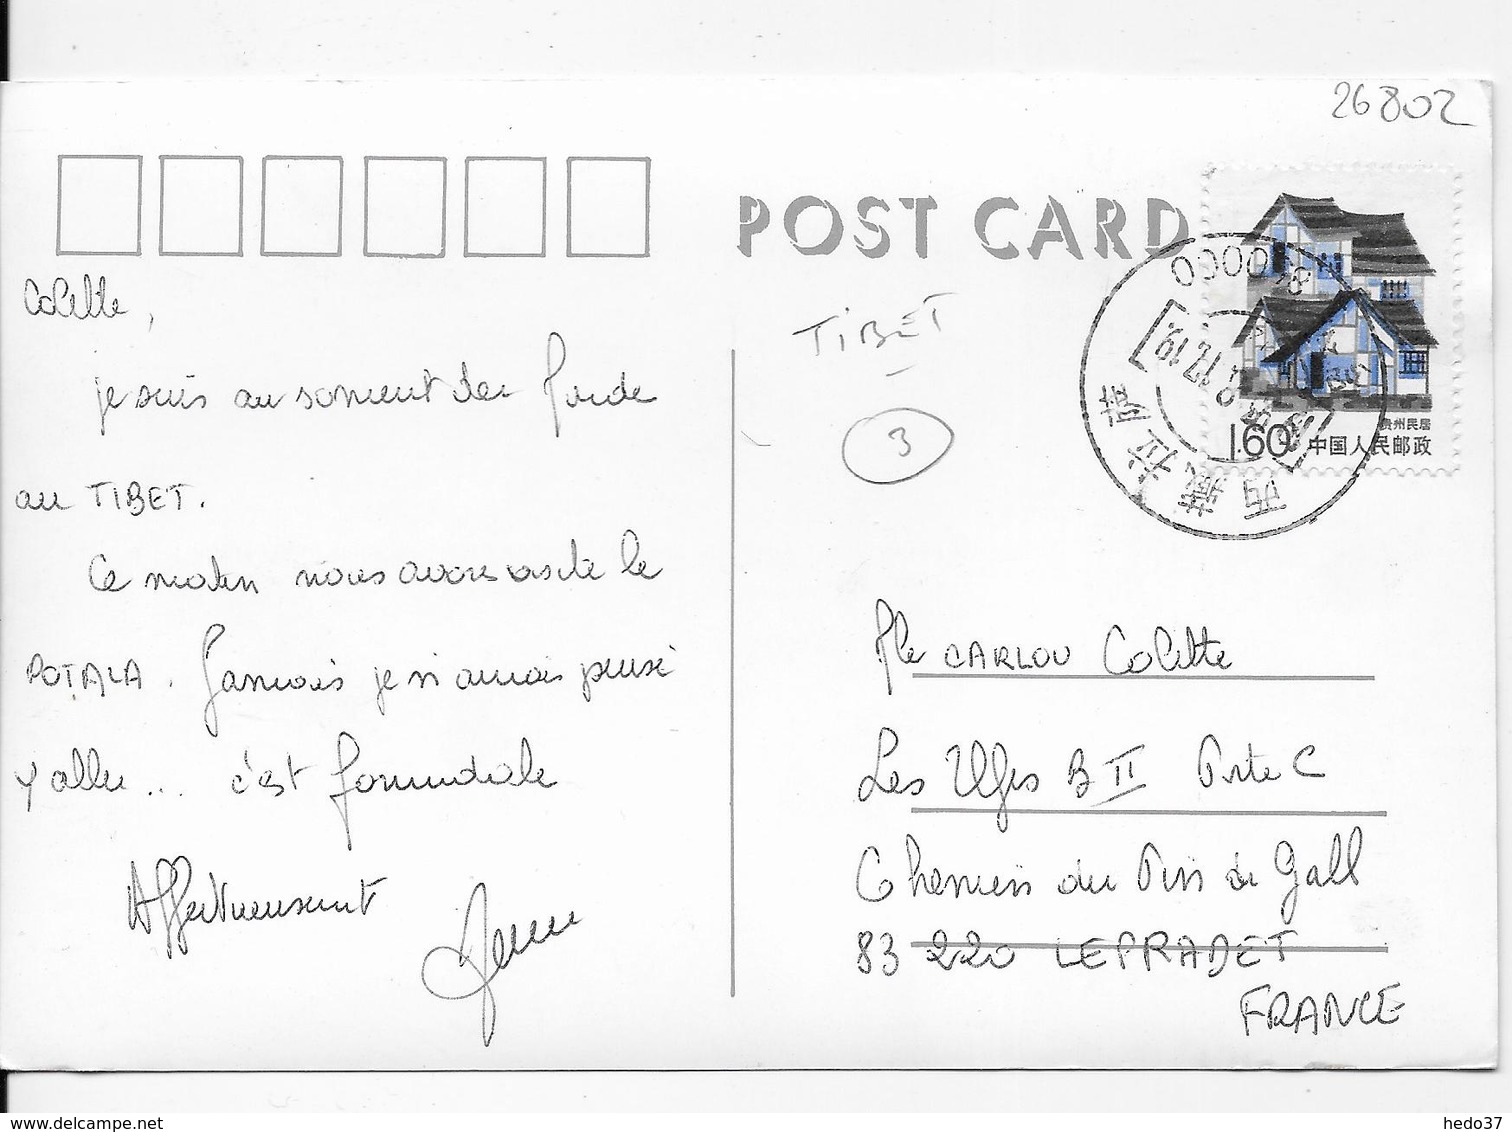 26802
POST CARD
Colette,
je suis au sommet du monde
au TIBET.
Ce matin nous avons visité le
POTALA. Jamais je n'aurais pensé
y aller... c'est formidable
Affectueusement
TIBET
3
160
贵州民居
中国人民邮政
西藏拉萨
Mle CARLOU Colette
Les Ulfes B II Porte C
Chemin du Pin de Gall
83 220 LE PRADET
FRANCE
hedo37